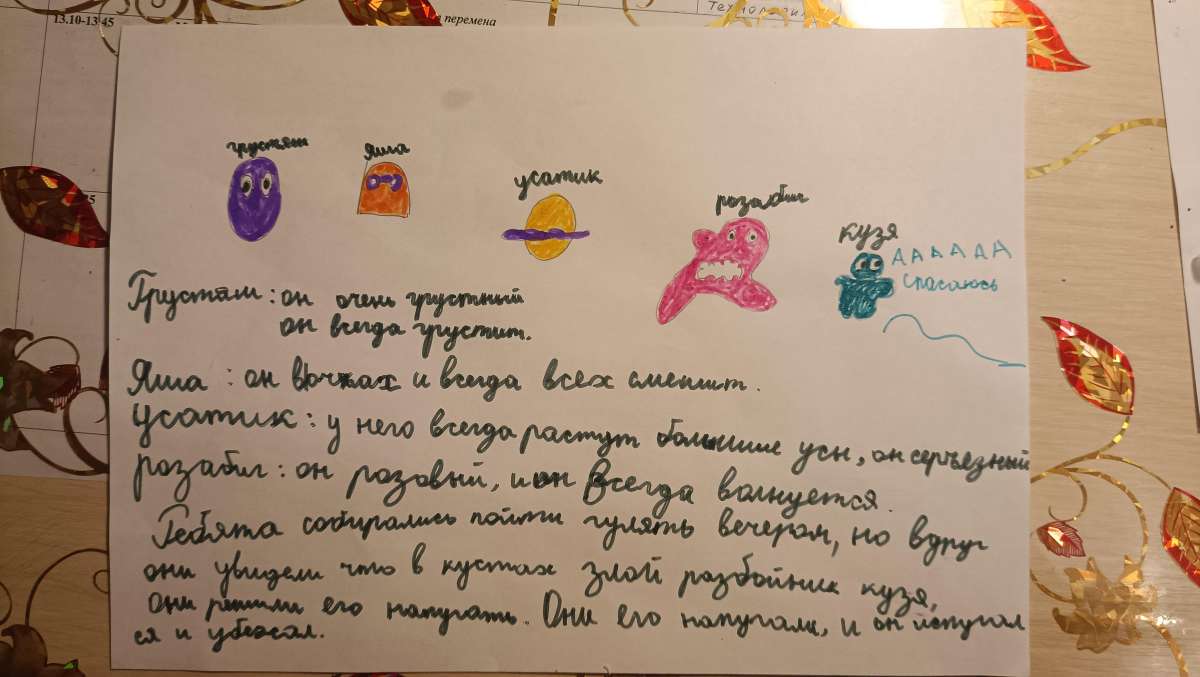 13.10-13.45
перемена
Технология
грустян
яша
усатик
розабич
кузя
АААААА
спасаюсь
Грустям: он очень грустный
он всегда грустит.
Яша: он в очках и всегда всех смешит.
усатик: у него всегда растут большие усы, он серъезный
розабич: он розовый, и он всегда волнуется.
Ребята собирались пойти гулять вечером, но вдруг
они увидели что в кустах злой разбойник кузя,
они решили его напугать. Они его напугали, и он испугал
ся и убежал.